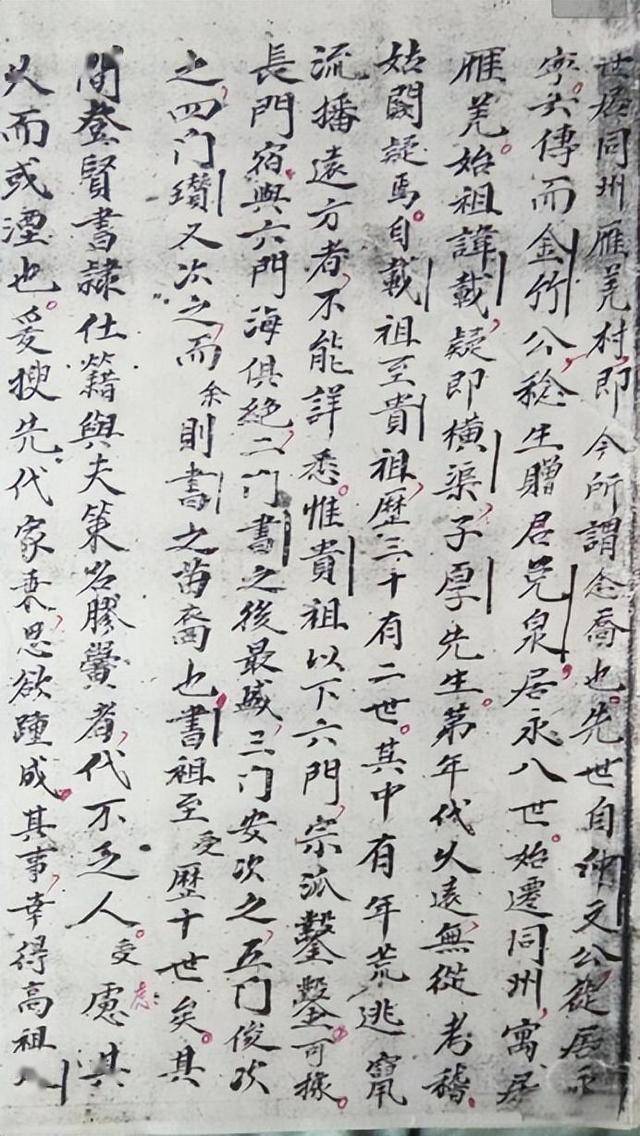 世居同州雁羌村，即今所謂念喬也。先世自仲文公從居永
寧，六傳而金竹公，稔生贈君莵泉，居永八世。始遷同州，寓居
雁羌。始祖諱載，疑即橫渠子厚先生。第年代久遠，無從考稽，
姑闕疑焉。自載祖至貴祖，歷三十有二世。其中有年荒逃竄
流播遠方者，不能詳悉。惟貴祖以下六門，宗派鑿鑿可據。
長門宿與六門海俱絕，二门書之後最盛，三门安次之，五门俊次
之，四门瓚又次之，而余則書之苗裔也，書祖至受歷十世矣。其
間登賢書隸仕籍與夫策名膠黌者，代不乏人。受慮其
久而或湮也。爰搜先代家乘，思欲踵成其事，幸得高祖